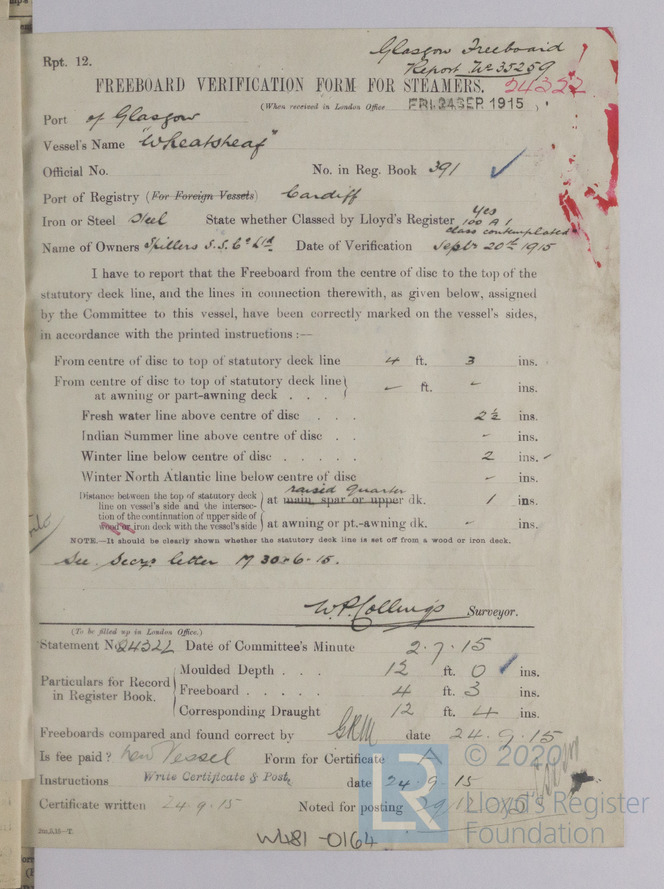 Glasgow Freeboard
Rpt. 12.
Report No 35259
FREEBOARD VERIFICATION FORM FOR STEAMERS.
24322
(When received in London Office FRI. 24 SEP. 1915 )
Port of Glasgow
Vessel's Name "Wheatsheaf"
Official No. No. in Reg. Book 391
Port of Registry (For Foreign Vessels) Cardiff
Yes
Iron or Steel Steel State whether Classed by Lloyd's Register 100 A 1
class contemplated
Name of Owners Spillers S.S. Co Ltd. Date of Verification Septr 20th 1915
I have to report that the Freeboard from the centre of disc to the top of the
statutory deck line, and the lines in connection therewith, as given below, assigned
by the Committee to this vessel, have been correctly marked on the vessel's sides,
in accordance with the printed instructions :—
From centre of disc to top of statutory deck line 4 ft. 3 ins.
From centre of disc to top of statutory deck line
at awning or part-awning deck . . . - ft. - ins.
Fresh water line above centre of disc . . . 2½ ins.
Indian Summer line above centre of disc . . - ins.
Winter line below centre of disc . . . . . 2 ins.
Winter North Atlantic line below centre of disc - ins.
raised quarter
Distance between the top of statutory deck
line on vessel's side and the intersec-
tion of the continuation of upper side of
wood or iron deck with the vessel's side
at main, spar or upper dk. 1 ins.
at awning or pt.-awning dk. - ins.
NOTE.—It should be clearly shown whether the statutory deck line is set off from a wood or iron deck.
See Secys letter M 30-6-15.
W.P. Collings Surveyor.
(To be filled up in London Office.)
Statement No. 24322 Date of Committee's Minute 2.7.15
Particulars for Record
in Register Book.
Moulded Depth . . . 12 ft. 0 ins.
Freeboard . . . . . 4 ft. 3 ins.
Corresponding Draught 12 ft. 4 ins.
Freeboards compared and found correct by GRM date 24.9.15
Is fee paid? New Vessel Form for Certificate A
Instructions Write Certificate & Post date 24.9.15
Certificate written 24.9.15 Noted for posting
2m,5,15—T.
W481-0164
© 2020
LR
Lloyd's Register
Foundation